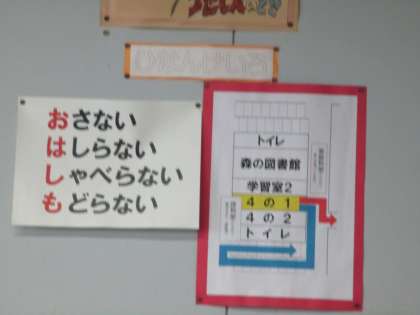 ひなんけいろ
おさない
はしらない
しゃべらない
もどらない
トイレ
森の図書館
学習室2
4の1
4の2
トイレ